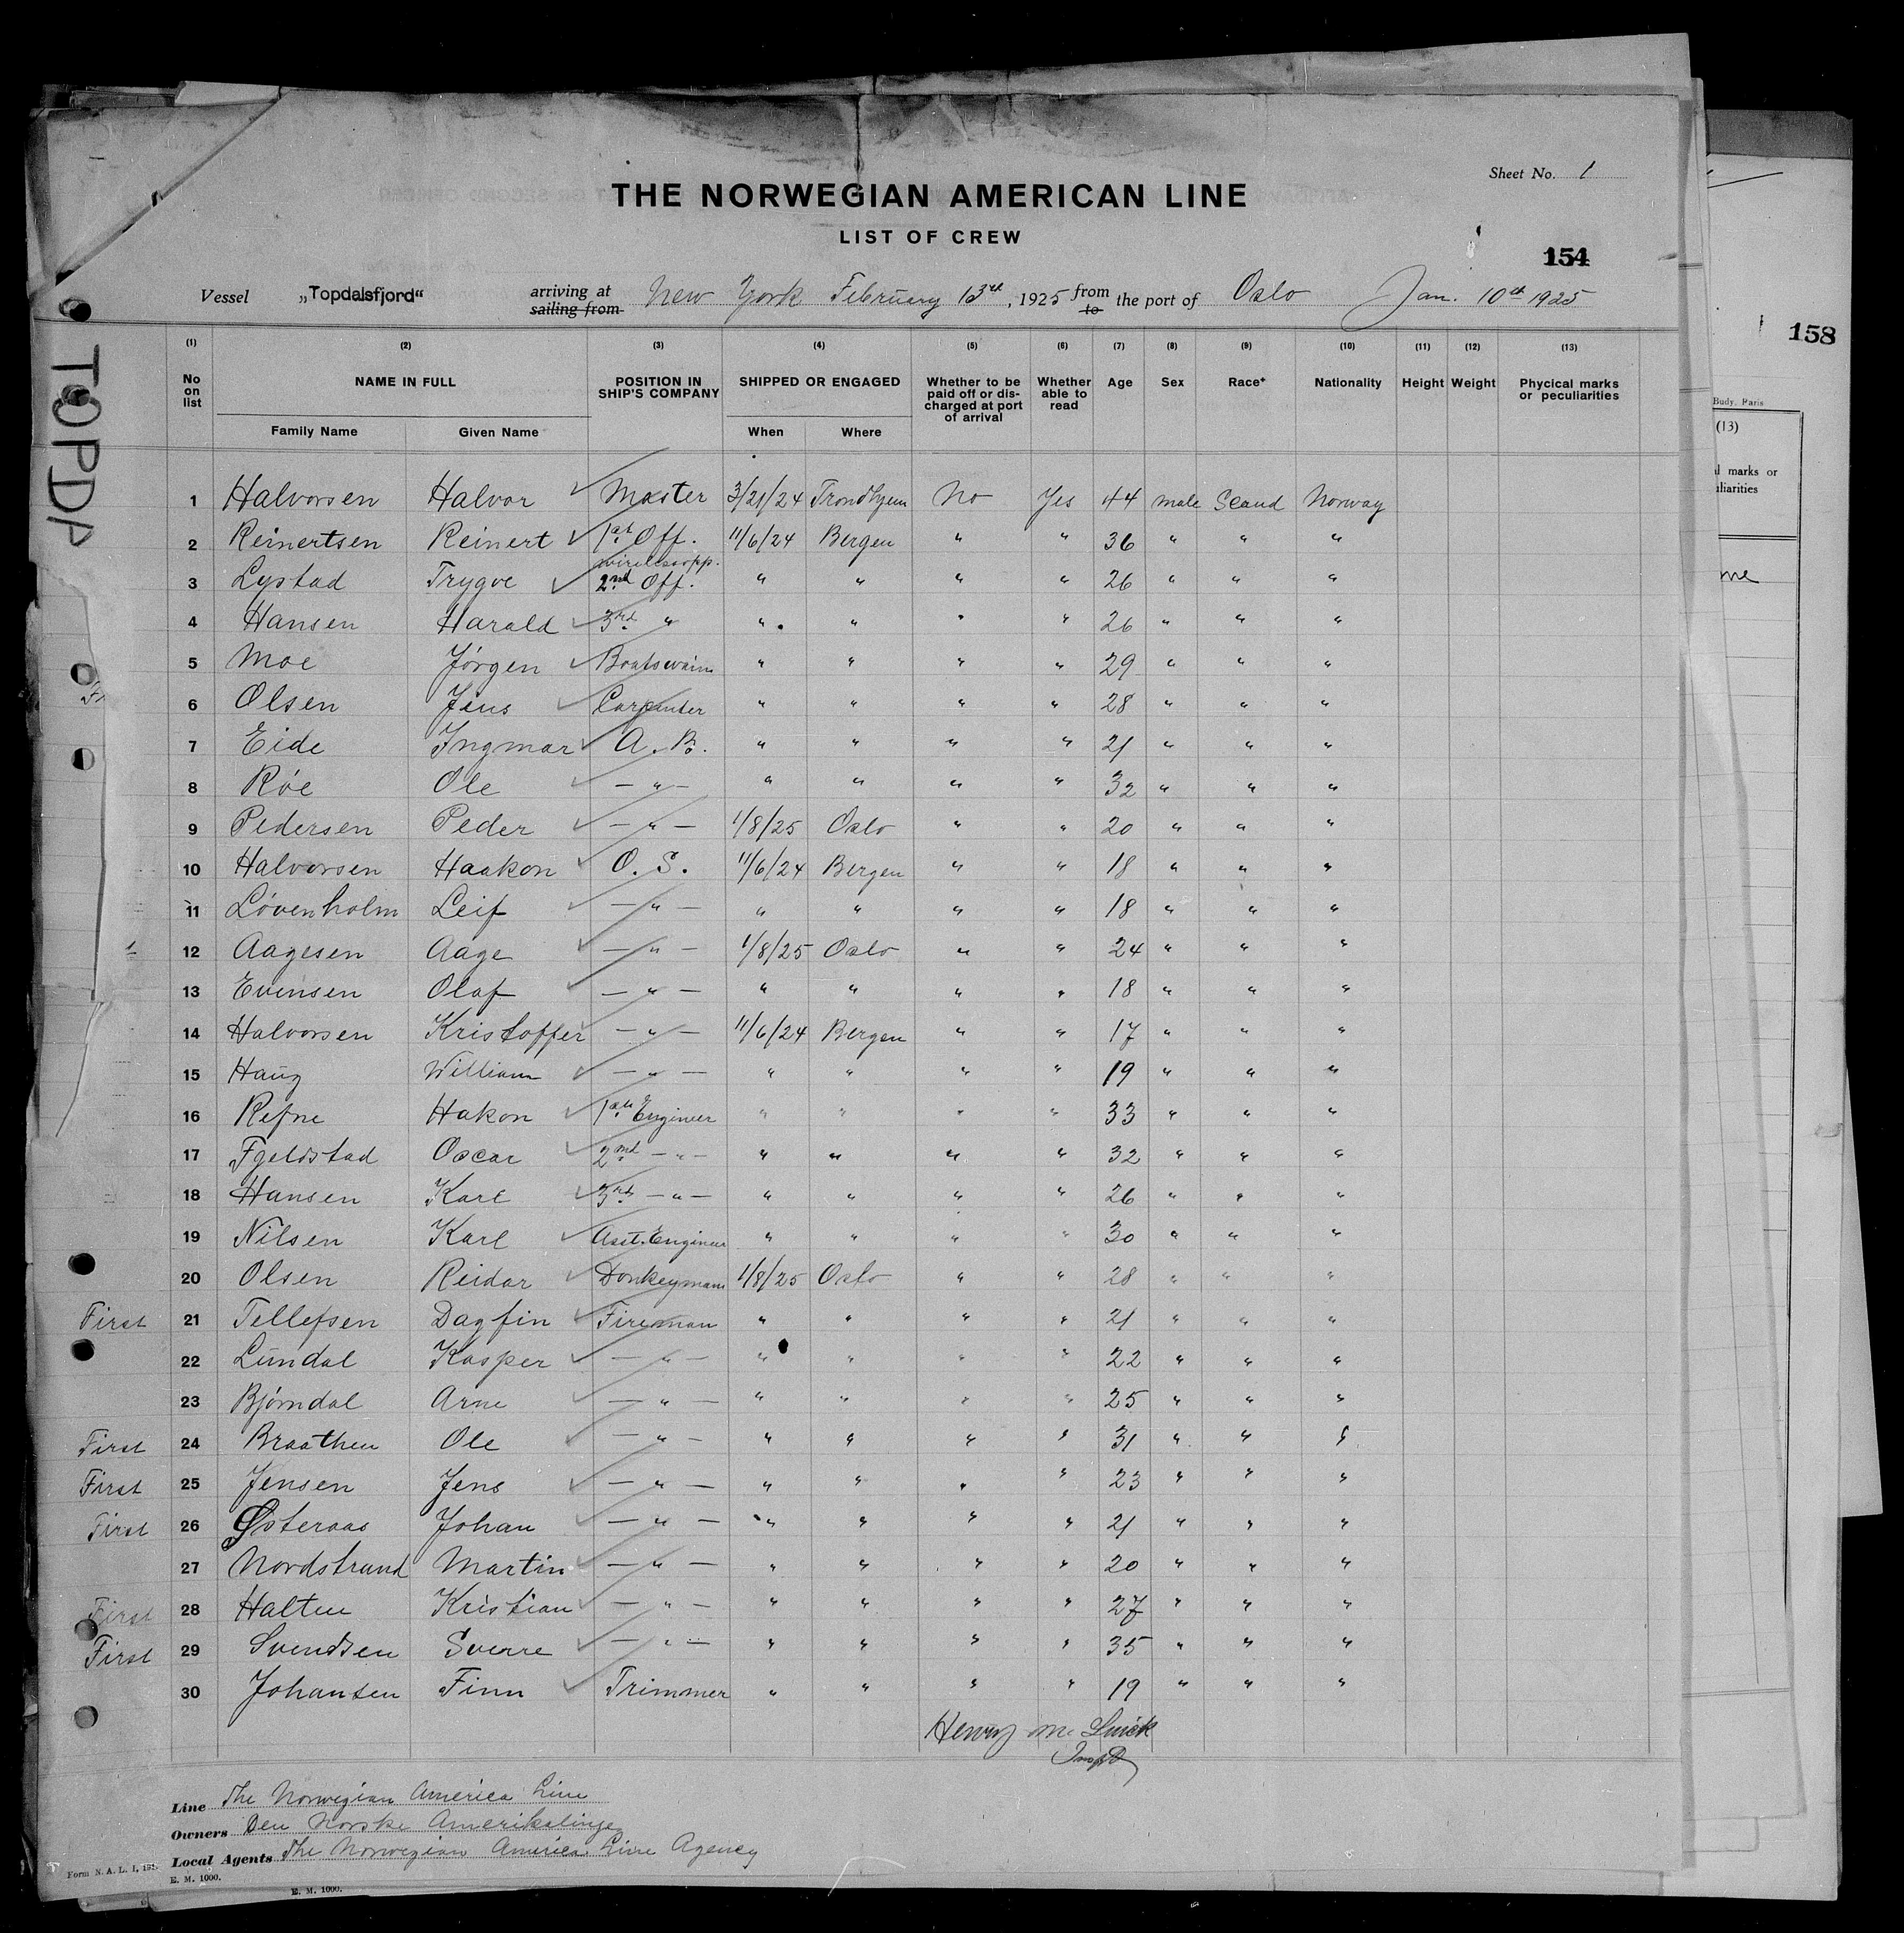 Sheet No. 1
THE NORWEGIAN AMERICAN LINE
LIST OF CREW
154
Vessel „Topdalsfjord“ arriving at sailing from New York February 13th, 1925 from to the port of Oslo Jan. 10th 1925
158
TOPDA
(1) (2) (3) (4) (5) (6) (7) (8) (9) (10) (11) (12) (13)
No on list NAME IN FULL POSITION IN SHIP'S COMPANY SHIPPED OR ENGAGED Whether to be paid off or discharged at port of arrival Whether able to read Age Sex Race* Nationality Height Weight Phycical marks or peculiarities
Family Name Given Name When Where
Budy, Paris
(13)
l marks or
uliarities
me
1 Halvorsen Halvor Master 3/21/24 Trondhjem No Yes 44 male Scand Norway
2 Reinertsen Reinert 1st Off. 11/6/24 Bergen " " 36 " " "
wireless opp.
3 Lystad Trygve 2nd Off. " " " " 26 " " "
4 Hansen Harald 3rd " " " " " 26 " " "
5 Moe Jörgen Boatswain " " " " 29 " " "
6 Olsen Jens Carpenter " " " " 28 " " "
7 Eide Ingmar A. B. " " " " 21 " " "
8 Röe Ole — " — " " " " 32 " " "
9 Pedersen Peder — " — 1/8/25 Oslo " " 20 " " "
10 Halvorsen Haakon O. S. 11/6/24 Bergen " " 18 " " "
11 Lövenholm Leif — " — " " " " 18 " " "
12 Aagesen Aage — " — 1/8/25 Oslo " " 24 " " "
13 Evensen Olaf — " — " " " " 18 " " "
14 Halvorsen Kristoffer — " — 11/6/24 Bergen " " 17 " " "
15 Haug William — " — " " " " 19 " " "
16 Refne Hakon 1st Engineer " " " " 33 " " "
17 Fjeldstad Oscar 2nd — " — " " " " 32 " " "
18 Hansen Karl 3rd — " — " " " " 26 " " "
19 Nilsen Karl Asst. Engineer " " " " 30 " " "
20 Olsen Reidar Donkeyman 1/8/25 Oslo " " 28 " " "
First 21 Tellefsen Dagfin Fireman " " " " 21 " " "
22 Lundal Kasper — " — " " " " 22 " " "
23 Björndal Arne — " — " " " " 25 " " "
First 24 Braathen Ole — " — " " " " 31 " " "
First 25 Jensen Jens — " — " " " " 23 " " "
First 26 Østeraas Johan — " — " " " " 21 " " "
27 Nordstrand Martin — " — " " " " 20 " " "
First 28 Halten Kristian — " — " " " " 27 " " "
First 29 Svendsen Sverre — " — " " " " 35 " " "
30 Johansen Finn Trimmer " " " " 19 " " "
Henry
Line The Norwegian America Line
Owners Den Norske Amerikalinje
Local Agents The Norwegian America Line Agency
Form N. A. L. 1,
E. M. 1000.
E. M. 1000.